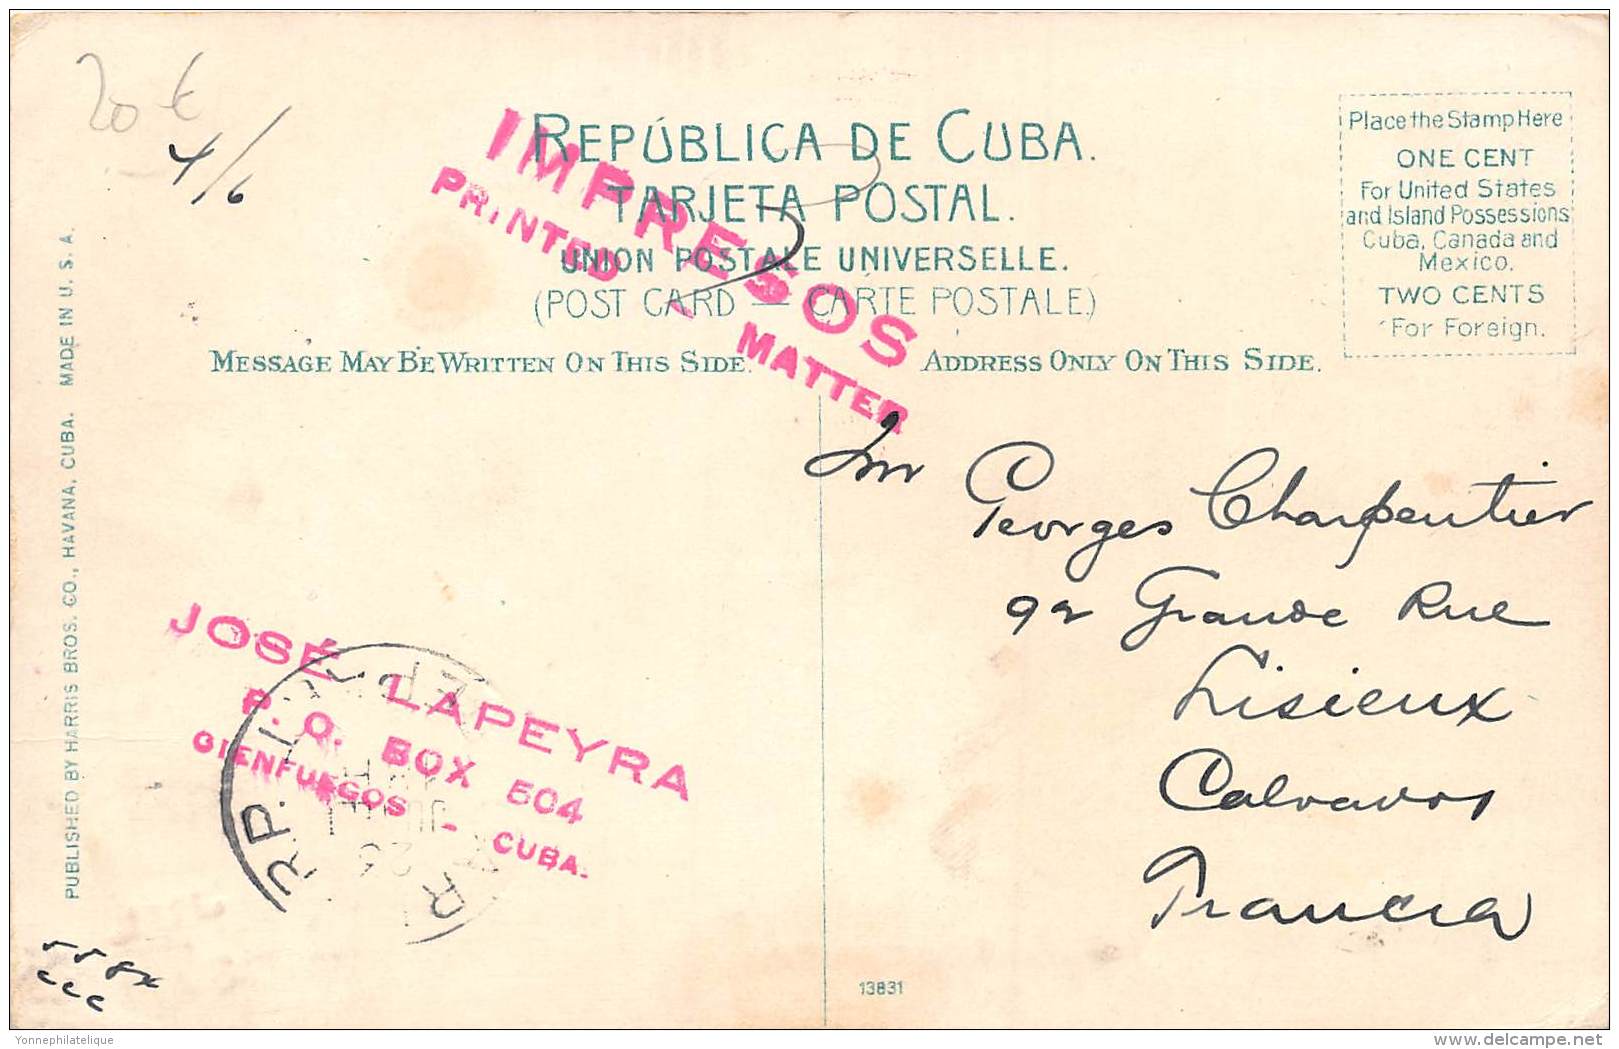 20 €
4/6
REPÚBLICA DE CUBA.
TARJETA POSTAL.
UNION POSTALE UNIVERSELLE.
(POST CARD — CARTE POSTALE.)
IMPRESOS
PRINTED - MATTER
Place the Stamp Here
ONE CENT
For United States
and Island Possessions
Cuba, Canada and
Mexico.
TWO CENTS
For Foreign.
MESSAGE MAY BE WRITTEN ON THIS SIDE.
ADDRESS ONLY ON THIS SIDE.
PUBLISHED BY HARRIS BROS. CO., HAVANA, CUBA. MADE IN U. S. A.
Georges Charpentier
92 Grande Rue
Lisieux
Calvados
Francia
JOSÉ LAPEYRA
P. O. BOX 504
CIENFUEGOS - CUBA.
RP.
13831
Yonnephilatelique
www.delcampe.net